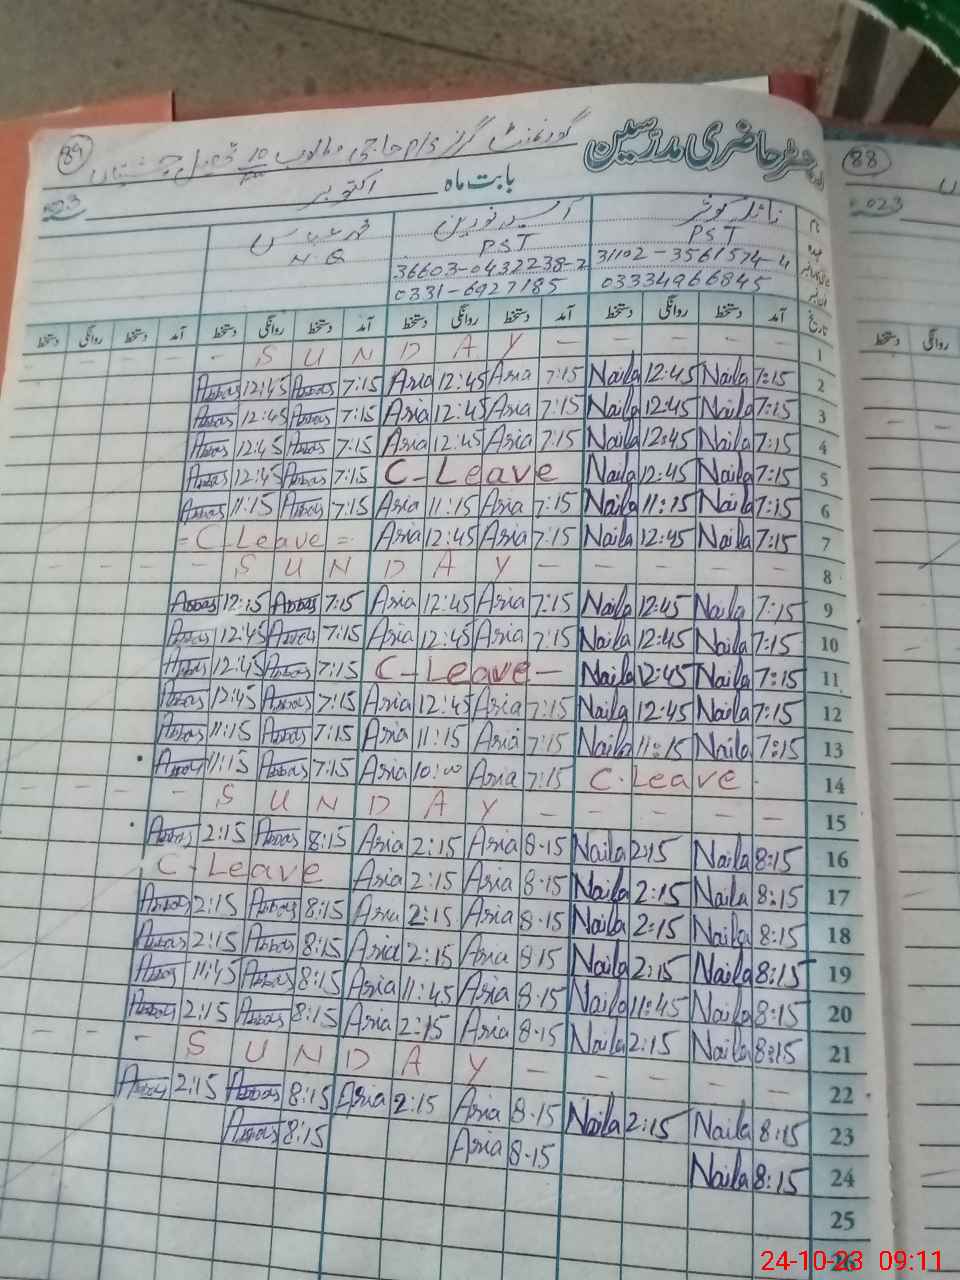 89
گورنمنٹ گرلز
رجسٹر حاضری مدرسین
88
بابت ماہ اکتوبر
2023
2023
نائلہ کوثر
PST PST N.Q
31102-3561574-4 36603-0432238-2
03334966845 0331-6927185
تاریخ آمد دستخط روانگی دستخط آمد دستخط روانگی دستخط آمد دستخط روانگی دستخط آمد دستخط روانگی دستخط
روانگی دستخط
- - - - S U N D A Y - - - - 1
Abbas 12:45 Abbas 7:15 Asia 12:45 Asia 7:15 Naila 12:45 Naila 7:15 2
Abbas 12:45 Abbas 7:15 Asia 12:45 Asia 7:15 Naila 12:45 Naila 7:15 3
Abbas 12:45 Abbas 7:15 Asia 12:45 Asia 7:15 Naila 12:45 Naila 7:15 4
Abbas 12:45 Abbas 7:15 C-Leave Naila 12:45 Naila 7:15 5
Abbas 11:15 Abbas 7:15 Asia 11:15 Asia 7:15 Naila 11:15 Naila 7:15 6
= C-Leave = Asia 12:45 Asia 7:15 Naila 12:45 Naila 7:15 7
- - - - - S U N D A Y - - - - - 8
Abbas 12:15 Abbas 7:15 Asia 12:45 Asia 7:15 Naila 12:45 Naila 7:15 9
Abbas 12:45 Abbas 7:15 Asia 12:45 Asia 7:15 Naila 12:45 Naila 7:15 10
Abbas 12:45 Abbas 7:15 C-Leave- Naila 12:45 Naila 7:15 11
Abbas 12:45 Abbas 7:15 Asia 12:45 Asia 7:15 Naila 12:45 Naila 7:15 12
Abbas 11:15 Abbas 7:15 Asia 11:15 Asia 7:15 Naila 11:15 Naila 7:15 13
Abbas 11:15 Abbas 7:15 Asia 10:00 Asia 7:15 C.Leave 14
- - - - - S U N D A Y - - - - - 15
Abbas 2:15 Abbas 8:15 Asia 2:15 Asia 8:15 Naila 2:15 Naila 8:15 16
C-Leave Asia 2:15 Asia 8:15 Naila 2:15 Naila 8:15 17
Abbas 2:15 Abbas 8:15 Asia 2:15 Asia 8:15 Naila 2:15 Naila 8:15 18
Abbas 2:15 Abbas 8:15 Asia 2:15 Asia 8:15 Naila 2:15 Naila 8:15 19
Abbas 11:45 Abbas 8:15 Asia 11:45 Asia 8:15 Naila 11:45 Naila 8:15 20
Abbas 2:15 Abbas 8:15 Asia 2:15 Asia 8:15 Naila 2:15 Naila 8:15 21
- - - S U N D A Y - - - - - 22
Abbas 2:15 Abbas 8:15 Asia 2:15 Asia 8:15 Naila 2:15 Naila 8:15 23
Abbas 8:15 Asia 8:15 Naila 8:15 24
25
26
24-10-23 09:11